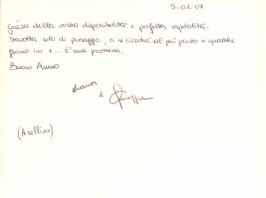 5-01-07
Grazie della vostra disponibilità e perfetta ospitalità.
Stavolta solo di passaggio, ci si rivedrà al più presto e qualche
giorno in + ... È una promessa.
Buon Anno
e Giuseppe
(Avellino)